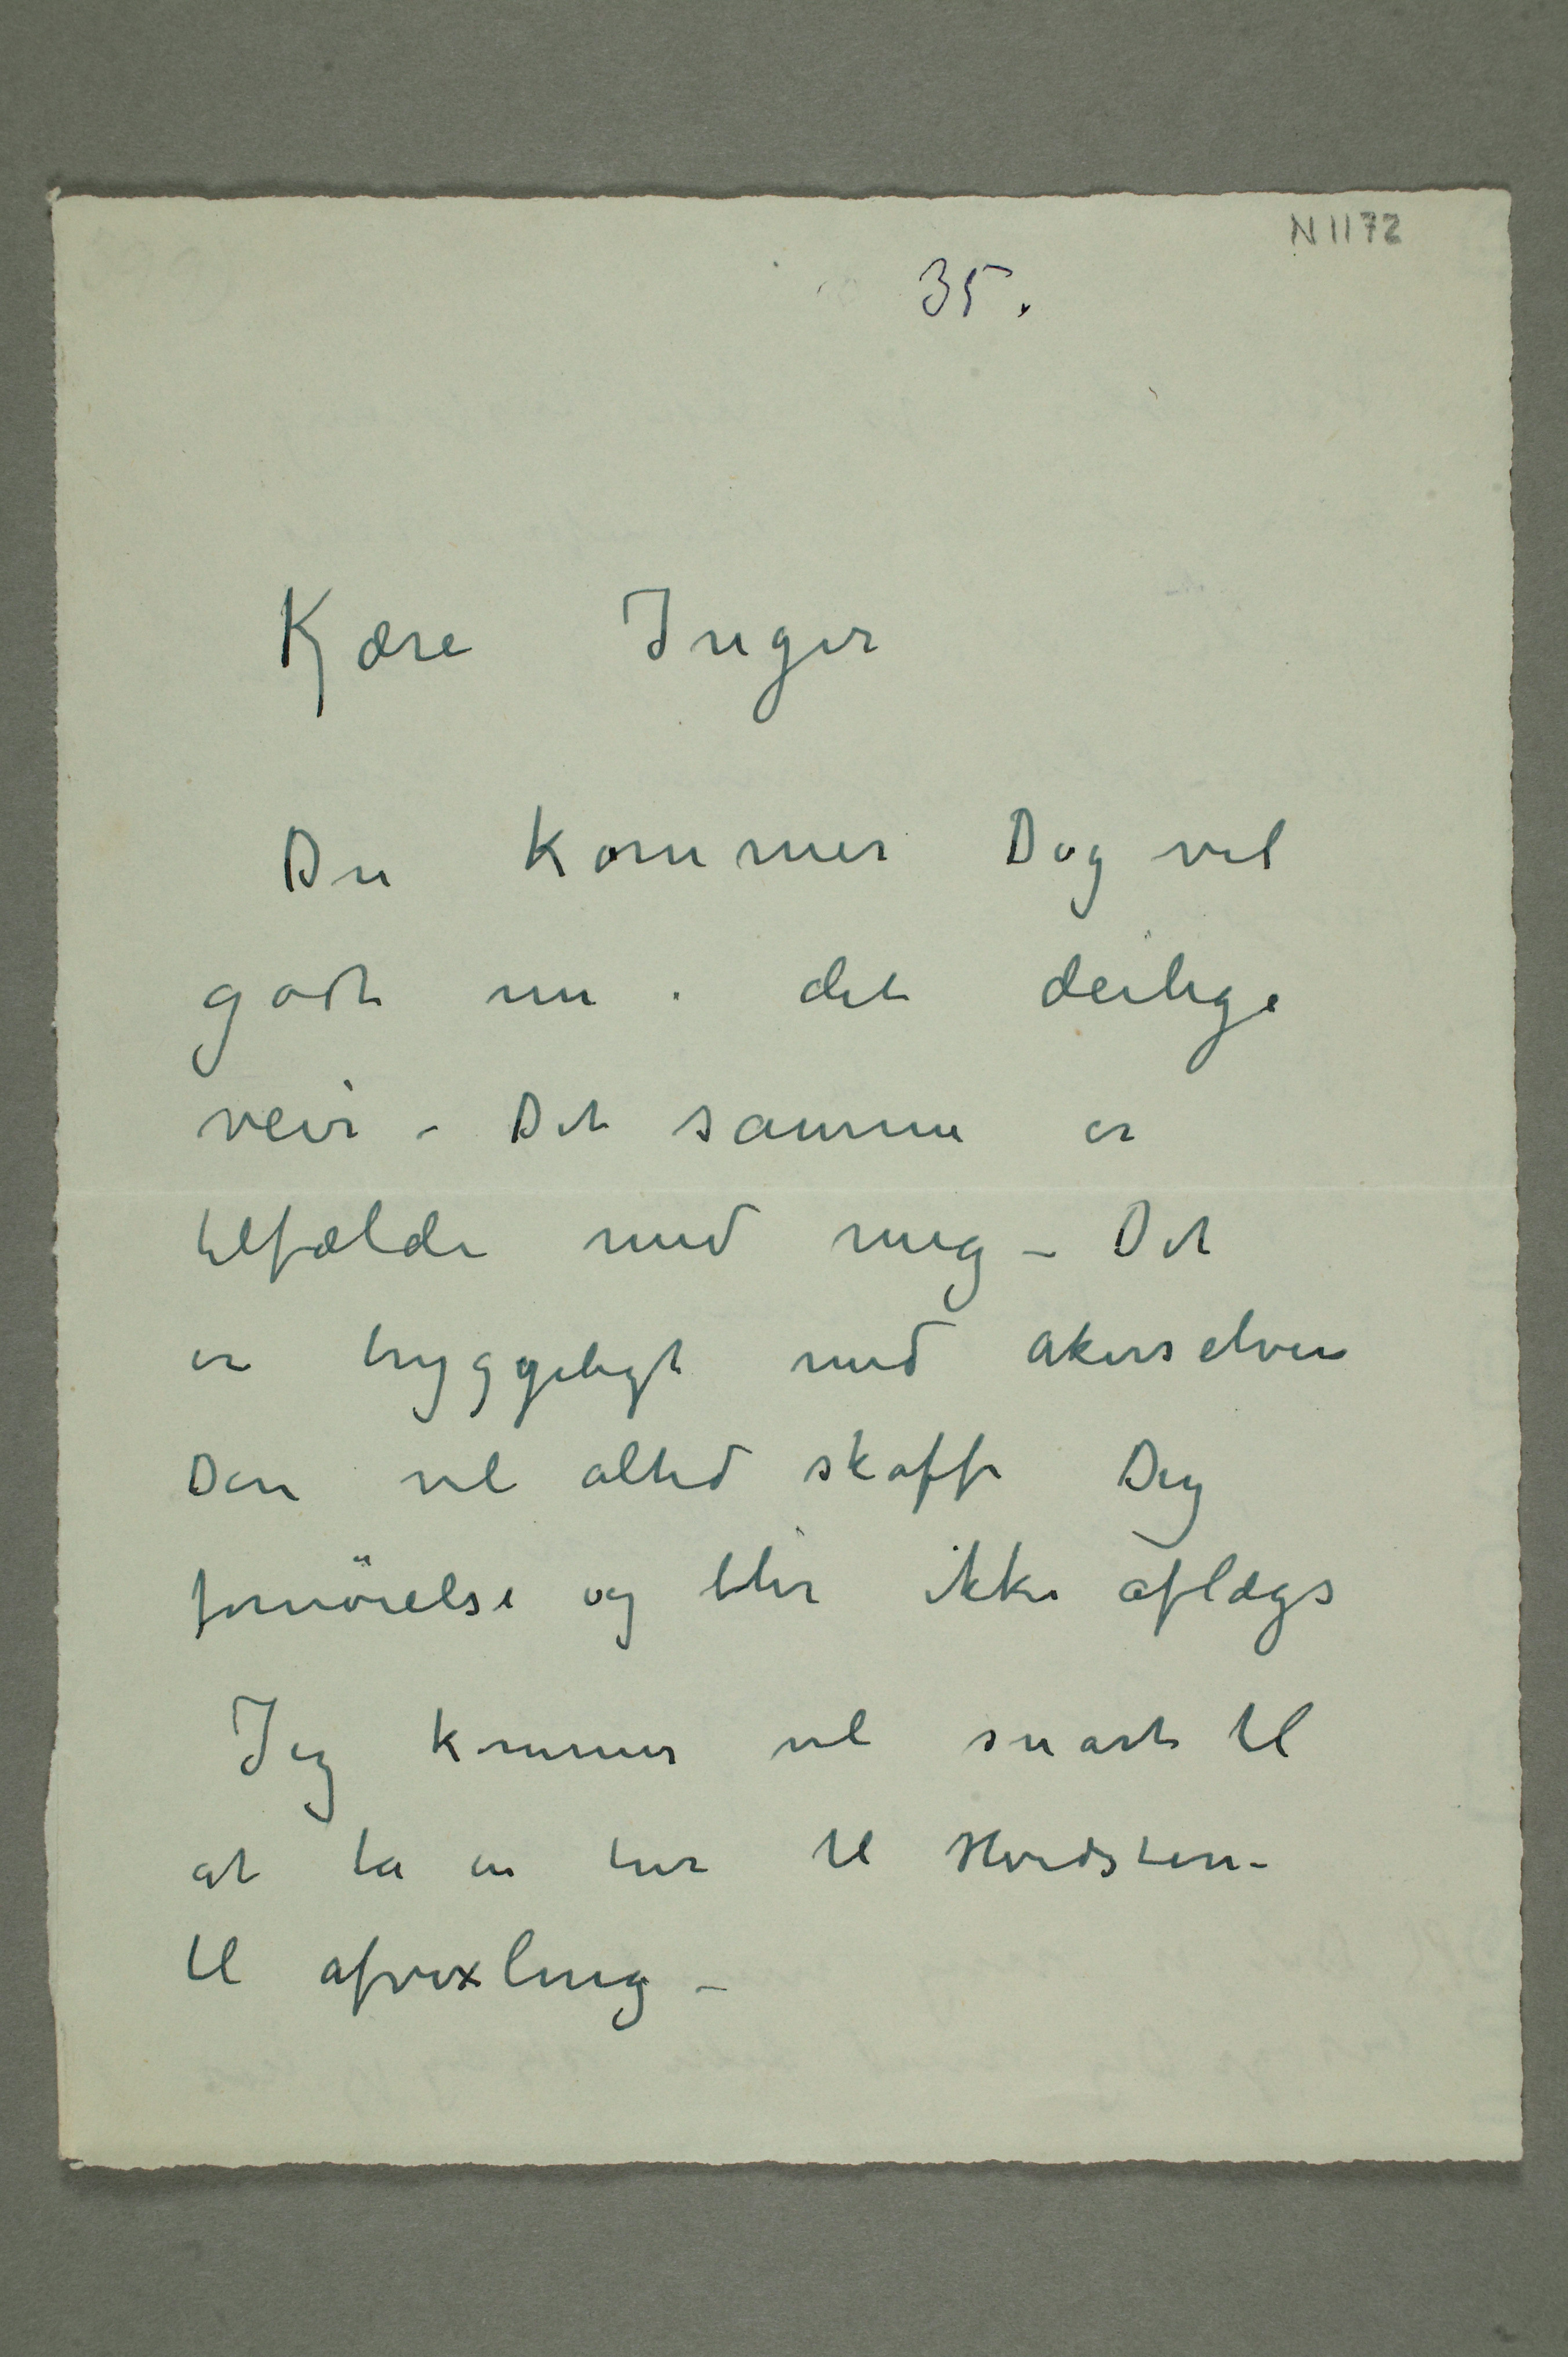 N 1172
35.
Kjære Inger
Du kommer Dog vel
godt nu i det deilige
veir – Det samme er
tilfælde med meg – Det
er hyggeligt med akerselven
Den vil altid skaffe Dig
fornöielse og blir ikke aflægs
Jeg kommer vel snart til
at ta en tur til Hvidsten –
til afvexling –